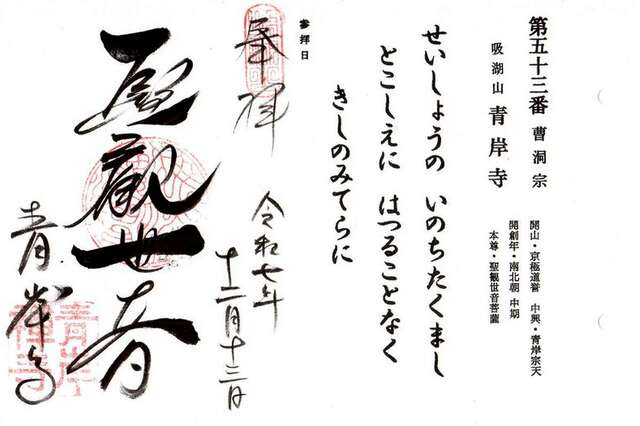 第五十三番 曹洞宗
吸湖山 青岸寺
開山・京極道誉 中興・青岸宗天
開創年・南北朝中期
本尊・聖観世音菩薩
せいしょうの いのちたくまし
とこしえに はつることなく
きしのみてらに
参拝日
奉拝
令和七年
十二月十三日
聖観世音
青岸寺
青岸禅寺